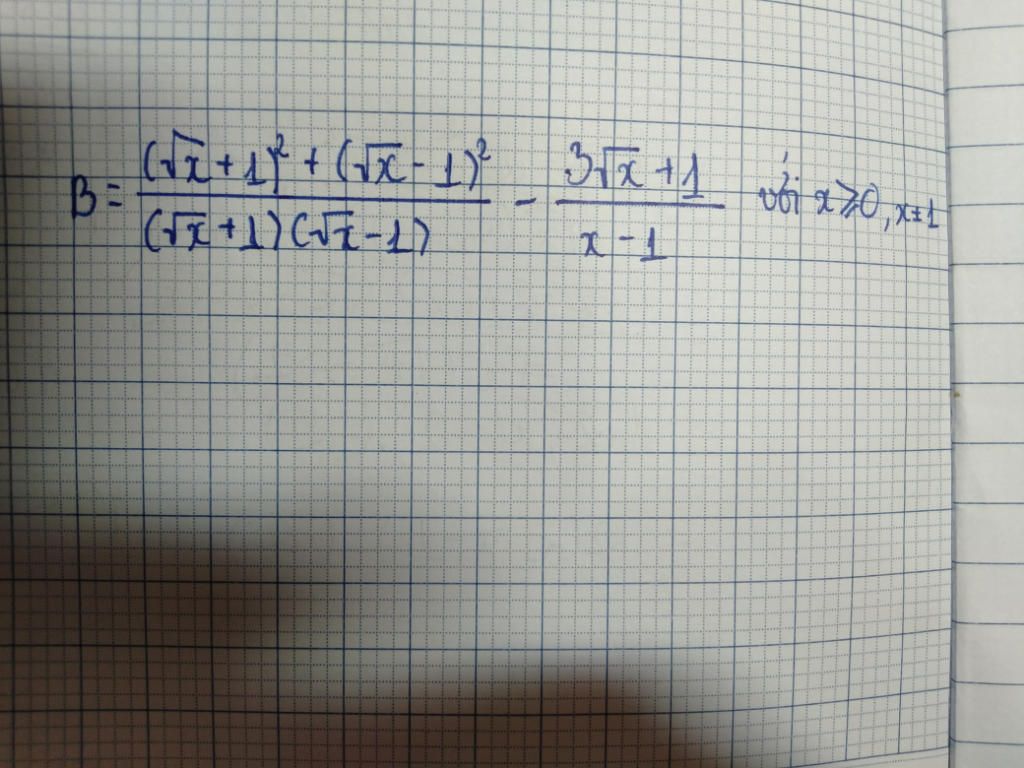 B = \frac{(\sqrt{x}+1)^2 + (\sqrt{x}-1)^2}{(\sqrt{x}+1)(\sqrt{x}-1)} - \frac{3\sqrt{x}+1}{x-1} với x ≥ 0, x ≠ 1